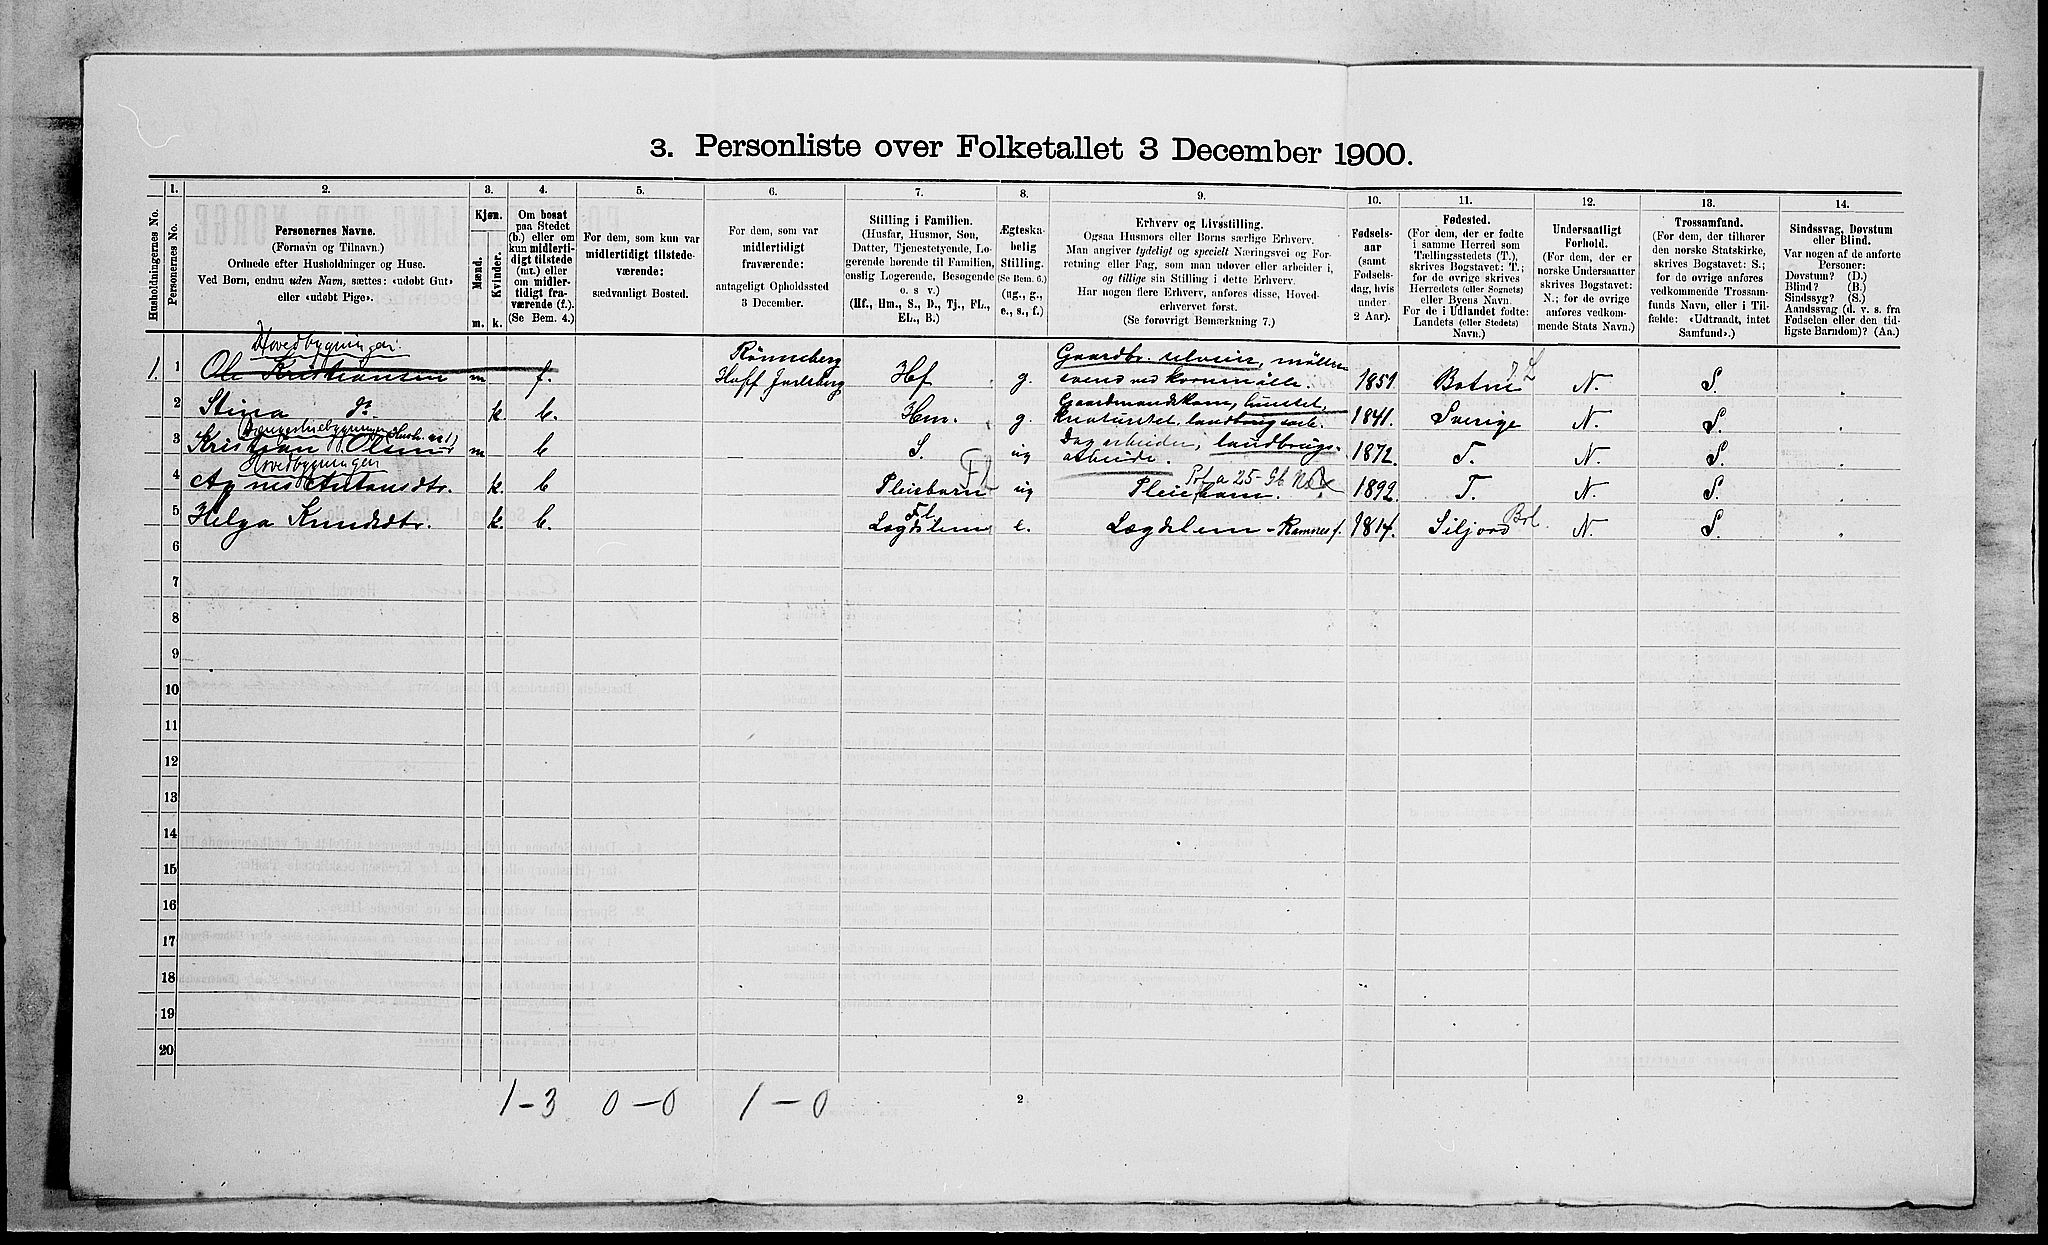 3. Personliste over Folketallet 3 December 1900.
Husholdningernes No.
1.
Personernes No.
2.
Personernes Navne.
(Fornavn og Tilnavn.)
Ordnede efter Husholdninger og Huse.
Ved Børn, endnu uden Navn, sættes: «udøbt Gut»
eller «udøbt Pige».
3.
Kjøn.
Mænd.
Kvinder.
m. k.
4.
Om bosat
paa Stedet
(b.) eller om
kun midlerti-
digt tilstede
(mt.) eller
om midler-
tidigt fra-
værende (f.).
(Se Bem. 4.)
5.
For dem, som kun var
midlertidigt tilstede-
værende:
sædvanligt Bosted.
6.
For dem, som var
midlertidigt
fraværende:
antageligt Opholdssted
3 December.
7.
Stilling i Familien.
(Husfar, Husmor, Søn,
Datter, Tjenestetyende, Lo-
gerende hørende til Familien,
enslig Logerende, Besøgende
o. s v.)
(Hf., Hm., S., D., Tj., FL.,
EL., B.)
8.
Ægteska-
belig
Stilling.
(Se Bem. 6.)
(ug., g.,
e., s., f.)
9.
Erhverv og Livsstilling.
Ogsaa Husmors eller Børns særlige Erhverv.
Man angiver tydeligt og specielt Næringsvei og For-
retning eller Fag, som man udøver eller arbeider i,
og tillige sin Stilling i dette Erhverv.
Har nogen flere Erhverv, anføres disse, Hoved-
erhvervet først.
(Se forøvrigt Bemærkning 7.)
10.
Fødsels-
aar
(samt
Fødsels-
dag, hvis
under
2 Aar).
11.
Fødested.
(For dem, der er fødte
i samme Herred som
Tællingsstedets (T.),
skrives Bogstavet: T.;
for de øvrige skrives
Herredets (eller Sognets)
eller Byens Navn.
For de i Udlandet fødte:
Landets (eller Stedets)
Navn.)
12.
Undersaatligt
Forhold.
(For dem, der er
norske Undersaatter
skrives Bogstavet:
N.; for de øvrige
anføres vedkom-
mende Stats Navn.)
13.
Trossamfund.
(For dem, der tilhører
den norske Statskirke,
skrives Bogstavet: S.;
for de øvrige anføres
vedkommende Trossam-
funds Navn, eller i Til-
fælde: «Udtraadt, intet
Samfund».)
14.
Sindssvag, Døvstum
eller Blind.
Var nogen af de anførte
Personer:
Døvstum? (D.)
Blind? (B.)
Sindssyg? (S.)
Aandssvag (d. v. s. fra
Fødselen eller den tid-
ligste Barndom)? (Aa.)
Hovedbygningen:
1. 1 Ole Kristiansen m f. Rönneberg
Hoff Jarlsberg Hf g. Gaardbr. selveier, möller-
svend ved kornmölle. 1851. Botne N. S.
2 Stina do k. b. Hm. g. Gaardmandskone, husstel,
kreaturstel, landbrugsarb. 1841. Sverige N. S.
3 Kristian Olsen m b S. ug Dagarbeider, landbrugs-
arbeide. 1872. T. N. S.
Hovedbygningen
4 Agnes Antonsdtr. k. b Pleiebarn FL ug Pleiebarn. 1892. T. N. S.
5 Helga Knudsdtr. k. b. Lægdslem FL e. Lægdslem - Ramnes f. 1814. Siljord N. S.
6
7
8
9
10
11
12
13
14
15
16
17
18
19
20
1-3 0-0 1-0
2